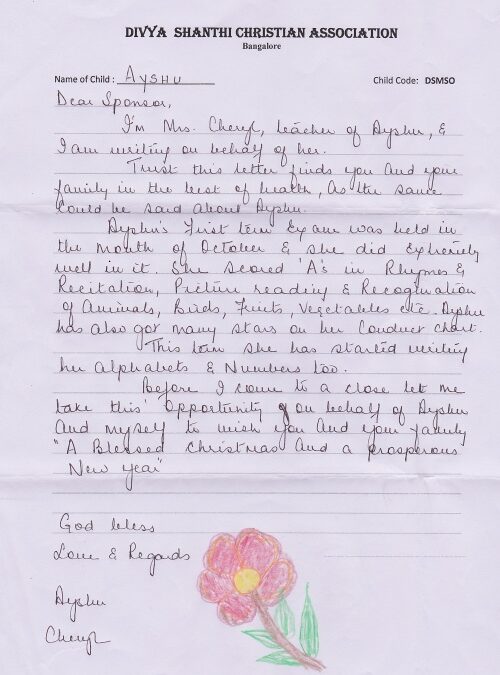 DIVYA SHANTHI CHRISTIAN ASSOCIATION
Bangalore
Name of Child : AYSHU
Child Code: DSMSO
Dear Sponsor,
I'm Mrs. Cheryl, teacher of Ayshu, &
I am writing on behalf of her.
Trust this letter finds you and your
family in the best of health, As the same
Could be said About Ayshu.
Ayshu's First term Exam was held in
the month of October & she did Extremely
well in it. She scored 'A's in Rhymes &
Recitation, Picture reading & Recognition
of Animals, Birds, Fruits, Vegetables etc. Ayshu
has also got many stars on her Conduct chart.
This term she has started writing
her Alphabets & Numbers too.
Before I come to a close let me
take this Opportunity on behalf of Ayshu
And myself to wish you And your family
"A Blessed Christmas And a prosperous
New year"
God bless
Love & Regards
Ayshu
Cheryl